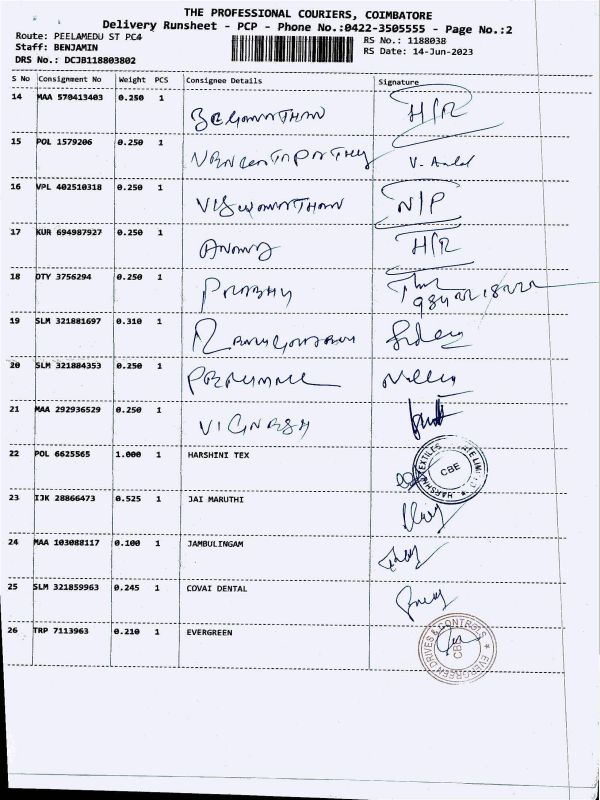 THE PROFESSIONAL COURIERS, COIMBATORE
Delivery Runsheet - PCP - Phone No.:0422-3505555 - Page No.:2
Route: PEELAMEDU ST PC4
RS No.: 1188038
Staff: BENJAMIN
RS Date: 14-Jun-2023
DRS No.: DCJB118803802
S No Consignment No Weight PCS Consignee Details Signature
14 MAA 570413403 0.250 1 H/R
15 POL 1579206 0.250 1
16 VPL 402510318 0.250 1 VISWANATHAN N/P
17 KUR 694987927 0.250 1 ANAND H/R
18 DTY 3756294 0.250 1 PRABHU
19 SLM 321881697 0.310 1
20 SLM 321884353 0.250 1 PERUMAL
21 MAA 292936529 0.250 1 VIGNESH
22 POL 6625565 1.000 1 HARSHINI TEX CBE
23 IJK 28866473 0.525 1 JAI MARUTHI
24 MAA 103088117 0.100 1 JAMBULINGAM
25 SLM 321859963 0.245 1 COVAI DENTAL
26 TRP 7113963 0.210 1 EVERGREEN EVERGREEN DRIVES & CONTROLS CBE